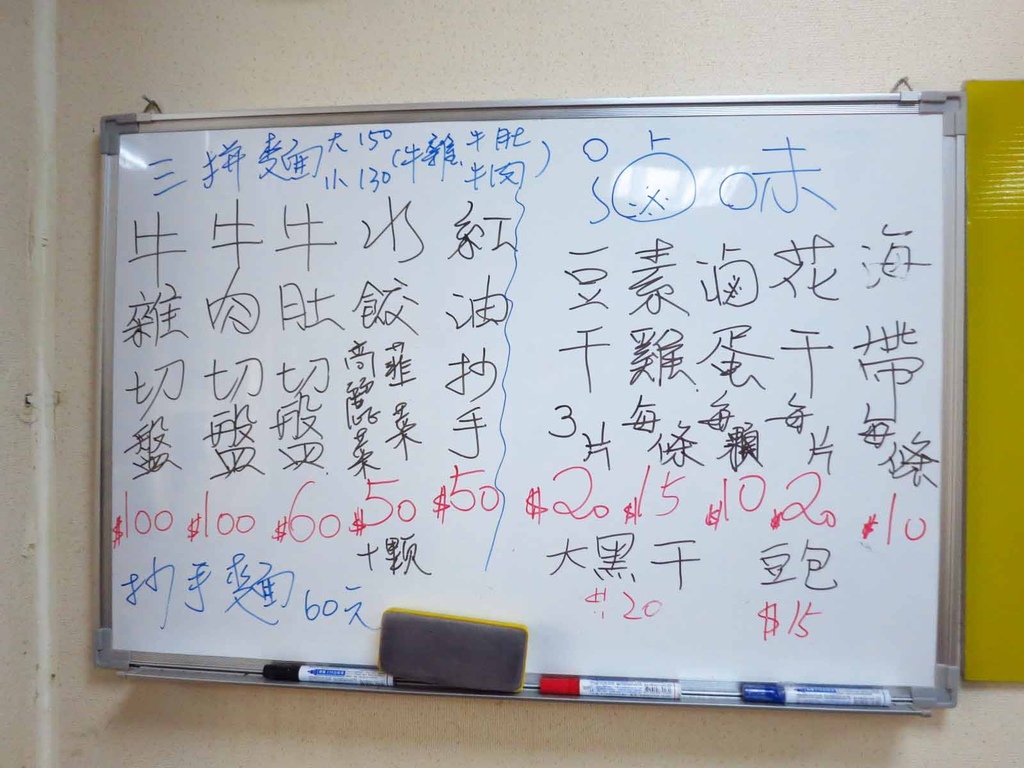 三拼麵 大150 小130 (牛雜 牛肚 牛肉)
牛雜切盤 $100
牛肉切盤 $100
牛肚切盤 $60
水餃 高麗菜 韭菜 $50 十顆
紅油抄手 $50
抄手麵 60元
滷味
豆干 3片 $20
素雞 每條 $15
滷蛋 每顆 $10
花干 每片 $20
海帶 每條 $10
大黑干 $20
豆包 $15